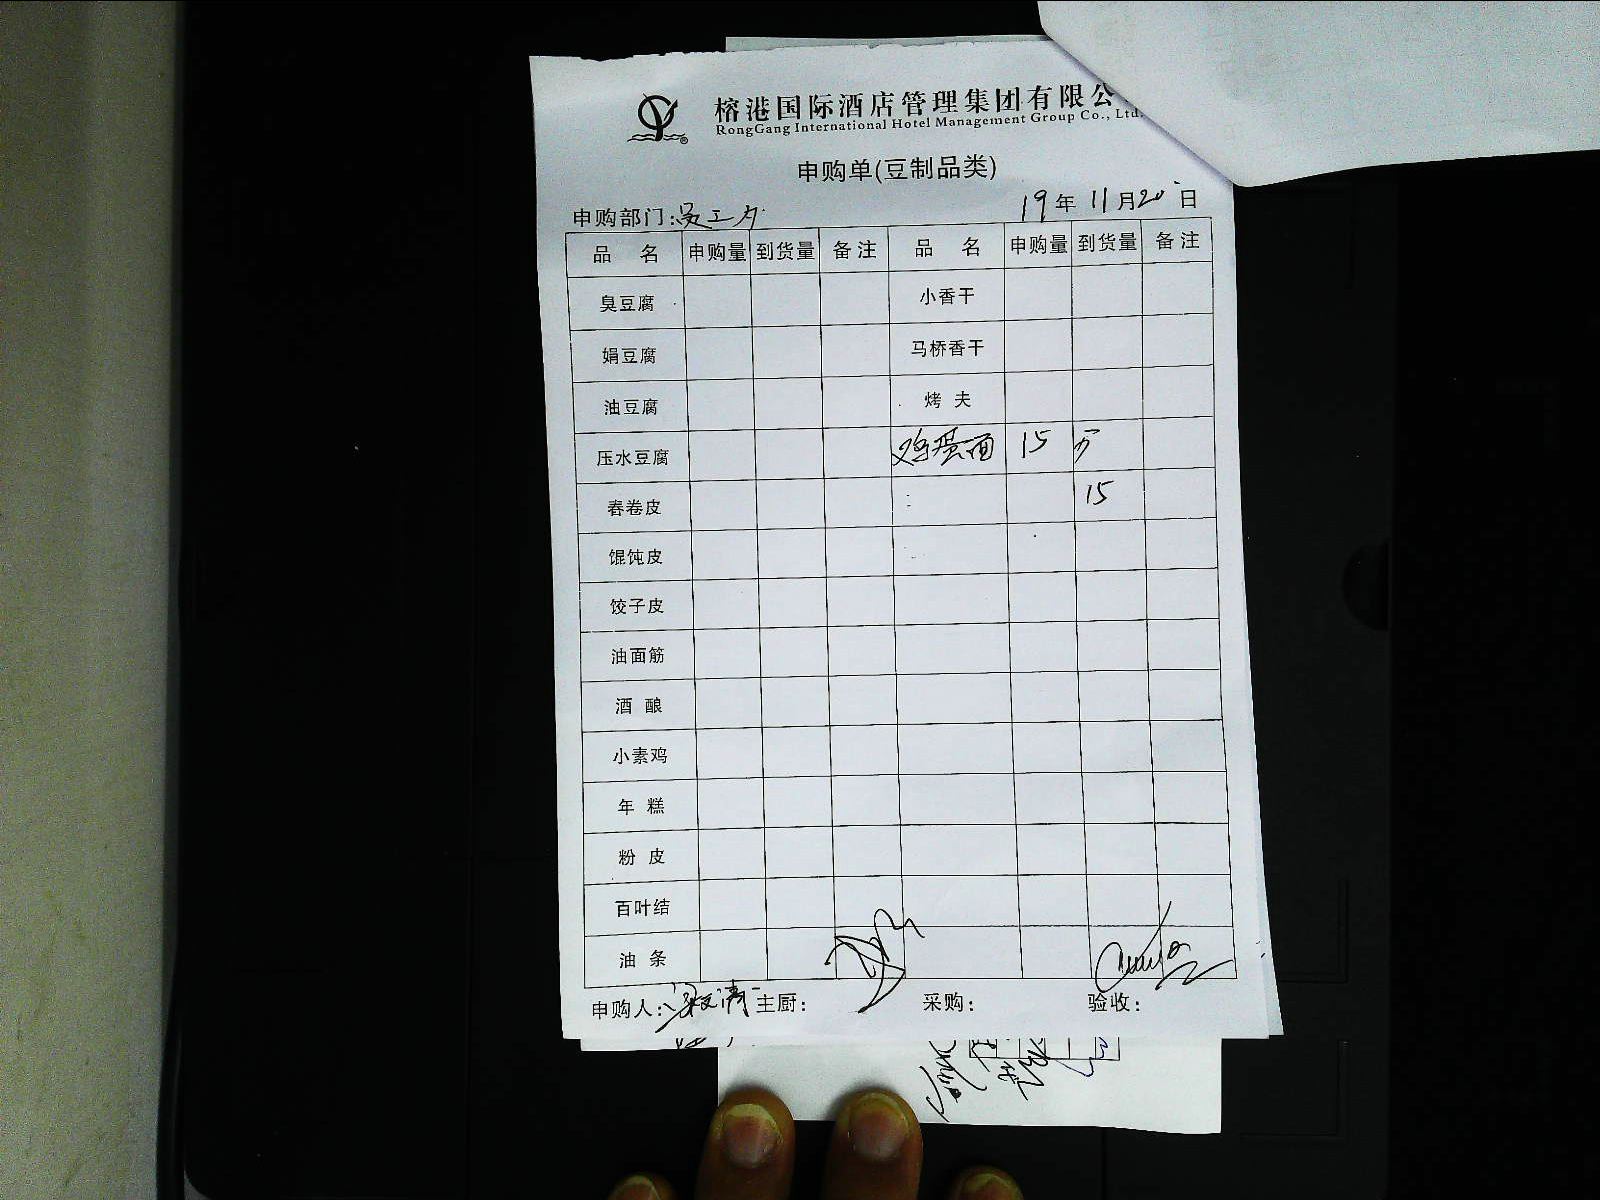 榕港国际酒店管理集团有限公
RongGang International Hotel Management Group Co., Ltd.
申购单(豆制品类)
申购部门: 员工夕 19年 11月20日
品 名 申购量 到货量 备注 品 名 申购量 到货量 备注
臭豆腐 小香干
娟豆腐 马桥香干
油豆腐 烤 夫
压水豆腐 鸡蛋面 15 斤
春卷皮 15
馄饨皮
饺子皮
油面筋
酒 酿
小素鸡
年 糕
粉 皮
百叶结
油 条
申购人: 主厨: 采购: 验收: